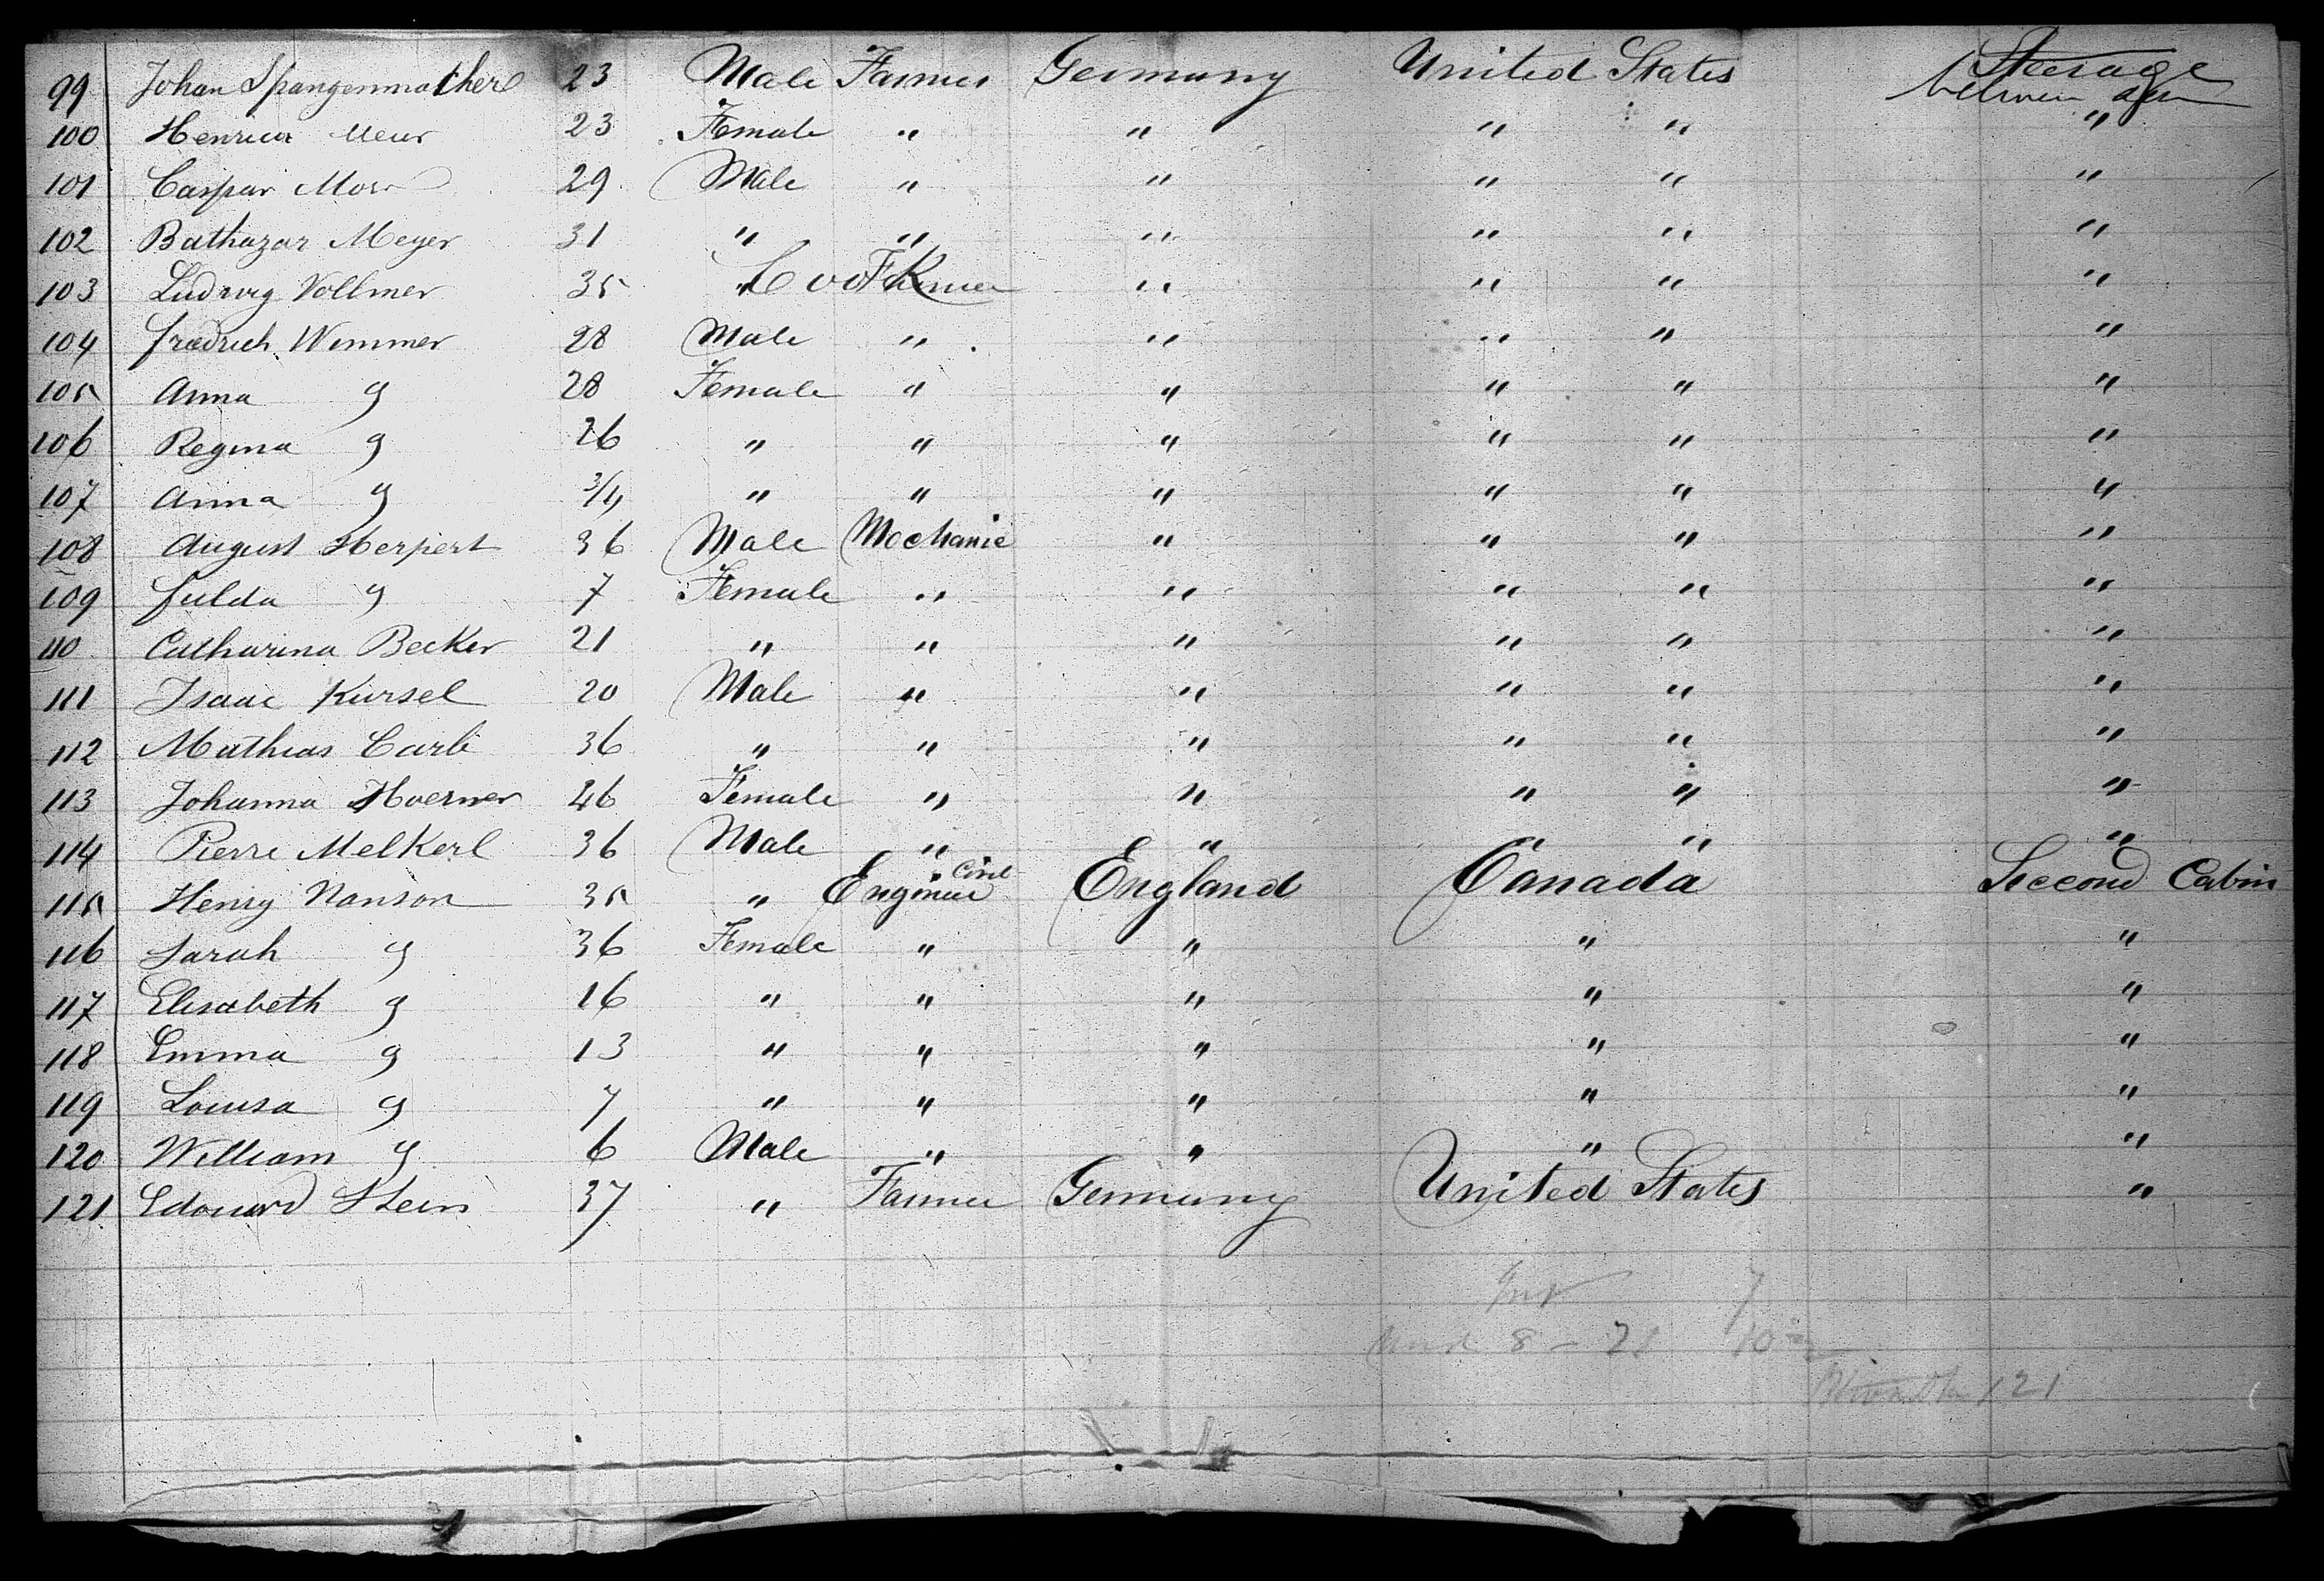 99 Johan Spangenmacherl 23 Male Farmer Germany United States Steerage
between
100 Henrica Meur 23 Female " " " " "
101 Caspar Morr 29 Male " " " " "
102 Bathazar Meyer 31 " " " " " "
103 Ludwig Vollmer 35 " Cook Farmer " " " "
104 friedrich Wimmer 28 Male " " " " "
105 Anna " 28 Female " " " " "
106 Regina " 26 " " " " " "
107 Anna " 3/4 " " " " " "
108 August Herpert 36 Male Mechanic " " " "
109 Julda " 7 Female " " " " "
110 Catharina Becker 21 " " " " " "
111 Isaac Kursel 20 Male " " " " "
112 Mathias Carli 36 " " " " " "
113 Johanna Hoerner 26 Female " " " " "
114 Pierre Melkerl 36 Male " " " " "
115 Henry Nanson 35 " Engineer Civil England Canada Second Cabin
116 Sarah " 36 Female " " " "
117 Elisabeth " 16 " " " " "
118 Emma " 13 " " " " "
119 Louisa " 7 " " " " "
120 William " 6 Male " " " "
121 Edouard Stein 37 " Farmer Germany United States "
7
8 -
121